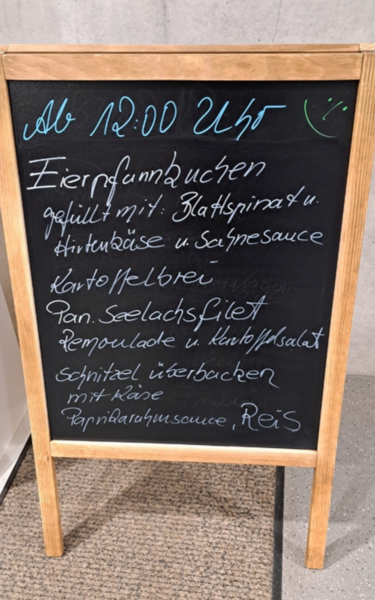 Ab 12:00 Uhr
Eierpfannkuchen
gefüllt mit: Blattspinat u.
Hirtenkäse u. Sahnesauce
Kartoffelbrei
Pan. Seelachsfilet
Remoulade u. Kartoffelsalat
Schnitzel überbacken
mit Käse
Paprikarahmsauce, Reis